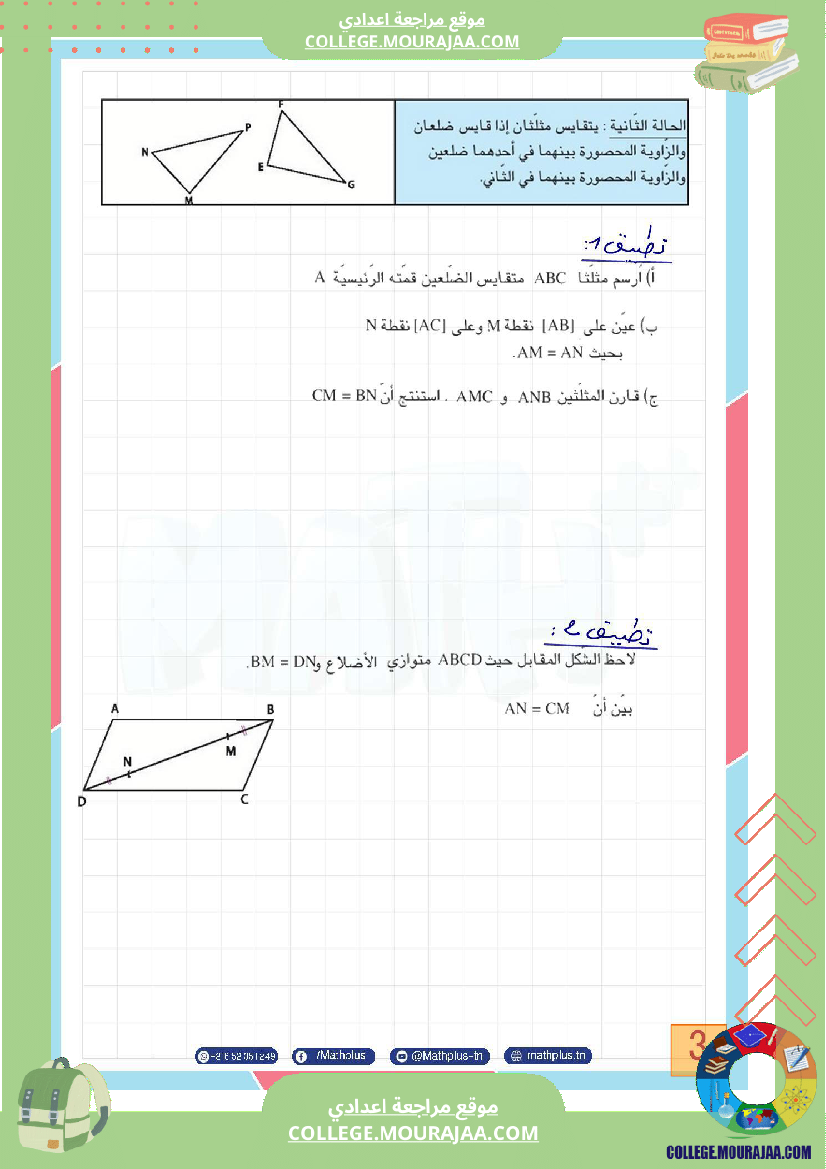 موقع مراجعة اعدادي
COLLEGE.MOURAJAA.COM
الحالة الثّانية : يتقايس مثلّثان إذا قايس ضلعان
والزّاوية المحصورة بينهما في أحدهما ضلعين
والزّاوية المحصورة بينهما في الثّاني.
F
P
N
E
G
M
تطبيق 1:
أ) اُرسم مثلّثا ABC متقايس الضّلعين قمّته الرّئيسيّة A
ب) عيّن على [AB] نقطة M وعلى [AC] نقطة N
بحيث AM = AN.
ج) قارن المثلّثين ANB و AMC . استنتج أنّ CM = BN
MATH+
تطبيق 2:
لاحظ الشّكل المقابل حيث ABCD متوازي الأضلاع و BM = DN.
بيّن أنّ AN = CM
A
B
N
M
D
C
/Mathplus
@Mathplus-tn
mathplus.tn
3
موقع مراجعة اعدادي
COLLEGE.MOURAJAA.COM
COLLEGE.MOURAJAA.COM